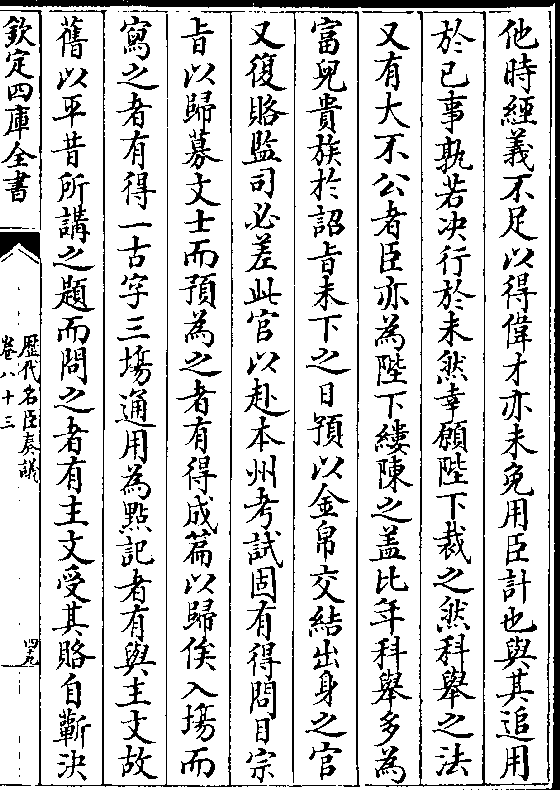 他時經義不足以得偉才亦未免用臣計也與其追用
於已事孰若决行於未然幸願陛下裁之然科舉之法
又有大不公者臣亦為陛下縷陳之盖比年科舉多為
富兒貴族於詔㫖未下之日預以金帛交結出身之官
又復賂監司必差此官以赴本州考試固有得問目宗
㫖以歸募文士而預為之者有得成篇以歸俟入塲而
寫之者有得一古字三塲通用為點記者有與主文故
舊以平昔所講之題而問之者有主文受其賂自蘄決
欽定四庫全書
歴代名臣奏議
卷八十三